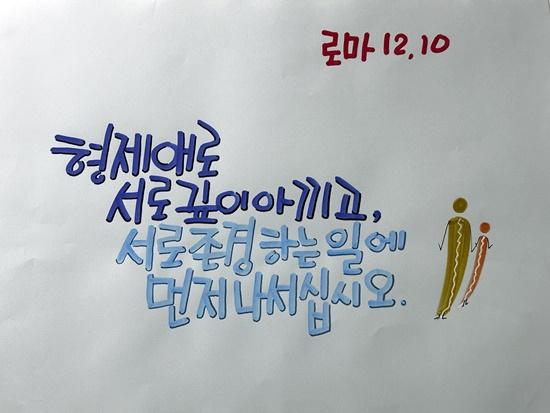 로마 12.10
형제애로
서로 깊이 아끼고,
서로 존경하는 일에
먼저 나서십시오.